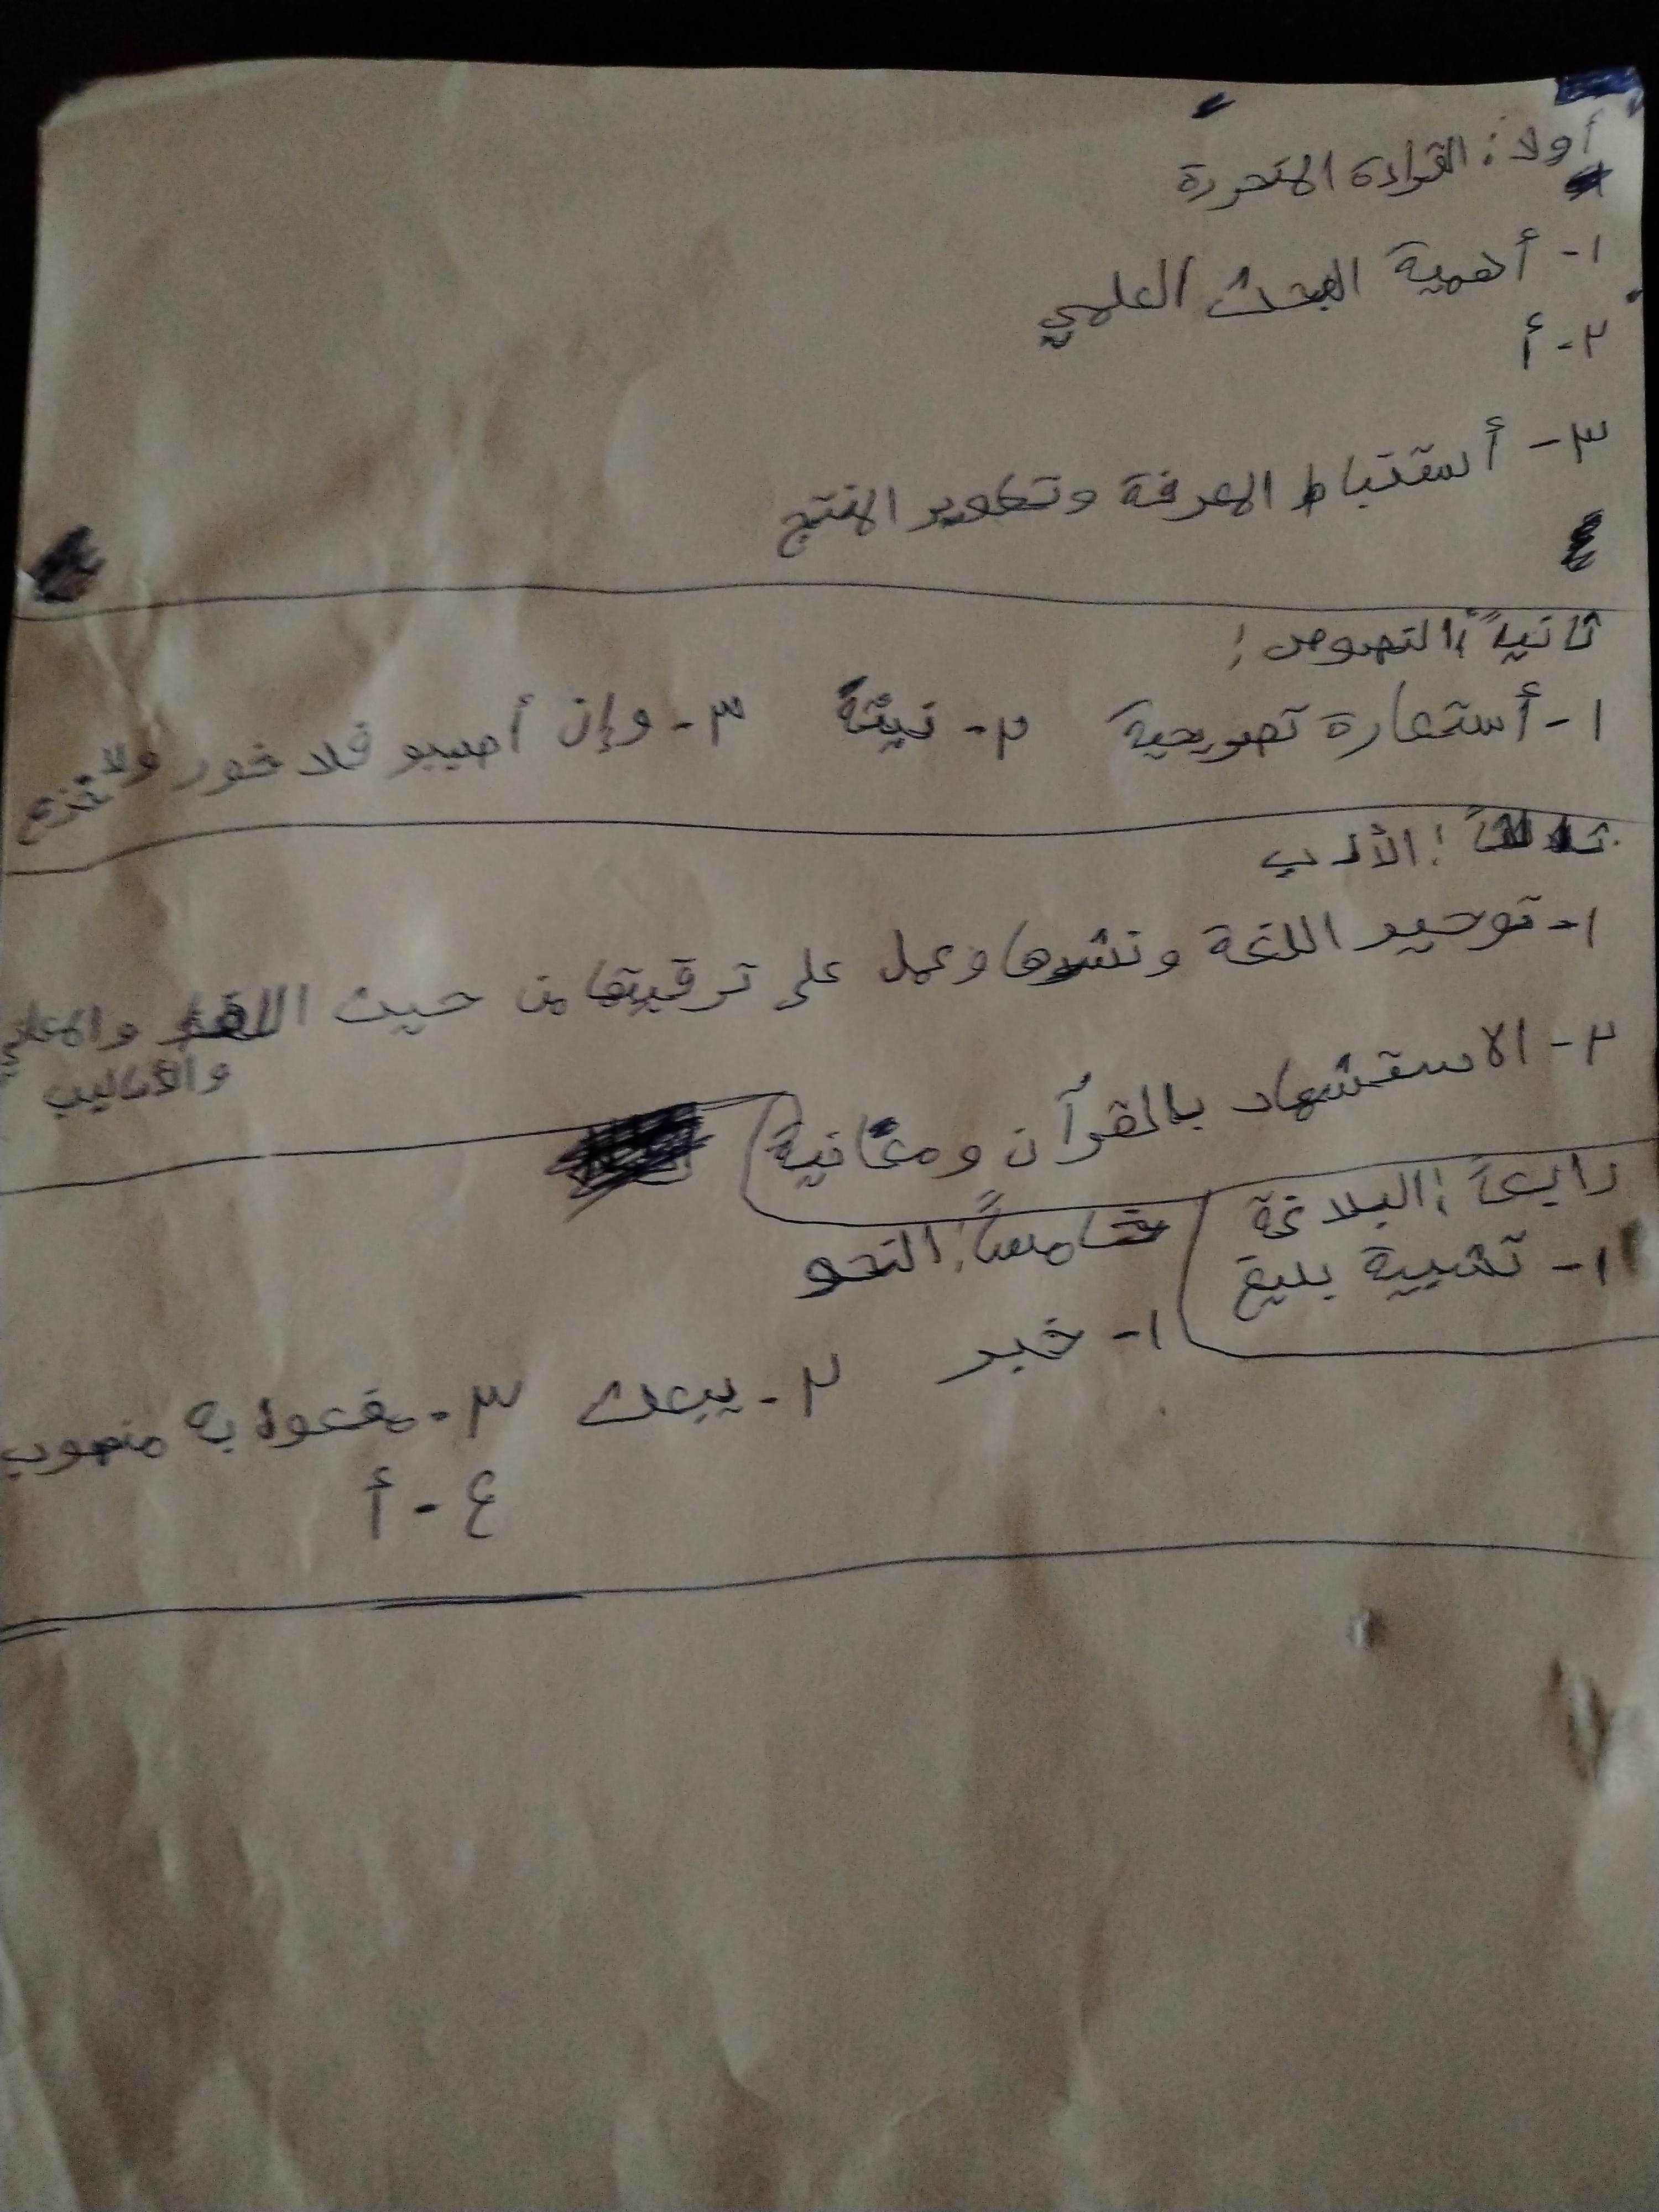 أولا: القراءة المتحررة
١- أهمية البحث العلمي
٢- أ
٣- أستنباط المعرفة وتطوير المنتج
ثانياً: النصوص:
١- أستعارة تصريحية ٢- نيئة ٣- وإن أصيبو فلا خور ولا
ثالثاً: الأدب
١- توحيد اللغة ونشرها وعمل على ترقيتها من حيث والمعاني
والأساليب
٢- الاستشهاد بالقرآن ومعانية
رابعاً: البلاغة
١- تشبية بليغ
خامساً: النحو
١- خبر ٢- يبعث ٣- مفعول به منصوب
٤- أ